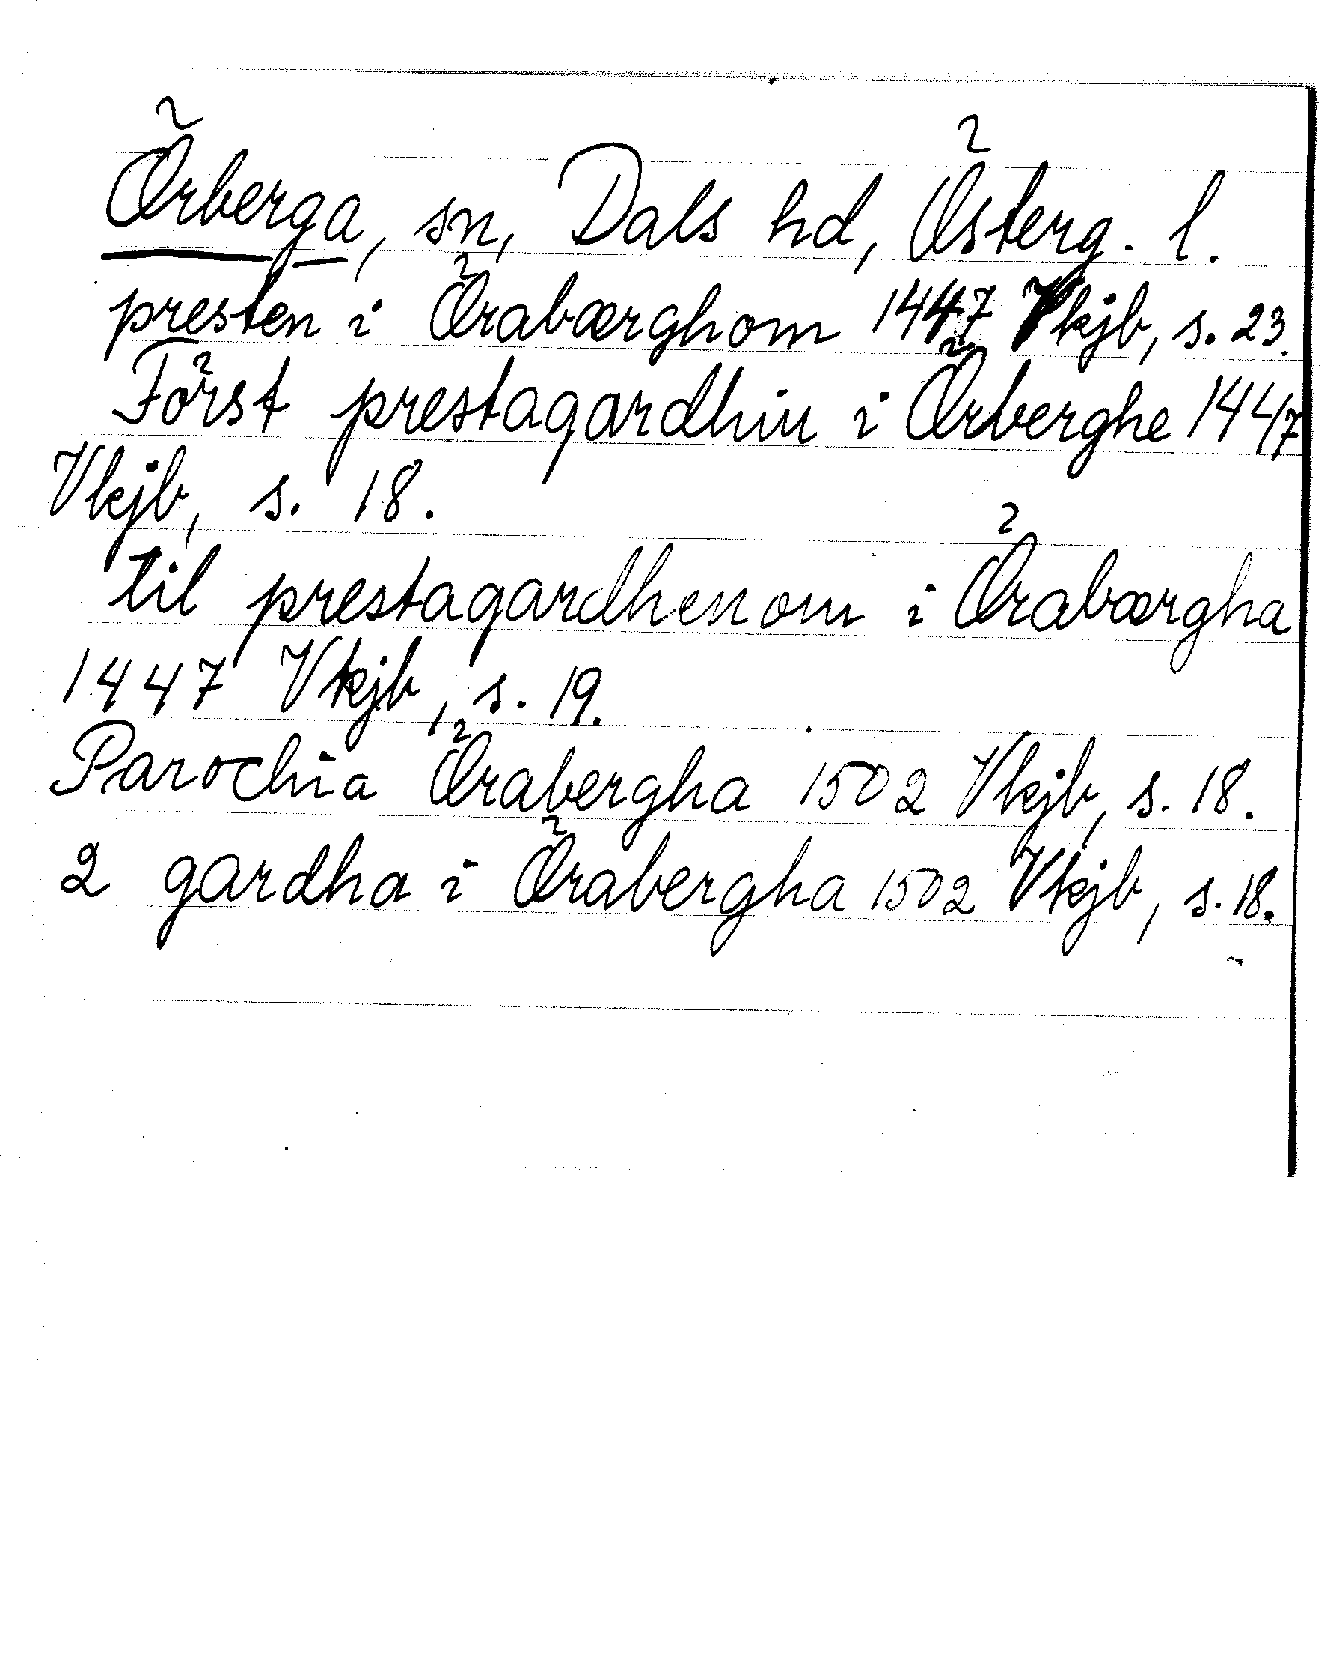 Örberga, sn, Dals hd, Österg. l.
presten i Örabærghom 1447 Vkjb, s. 23.
Först prestagardhin i Örberghe 1447
Vkjb, s. 18.
til prestagardhenom i Örabærgha
1447 Vkjb, s. 19.
Parochia Örabergha 1502 Vkjb, s. 18.
2 gardha i Örabergha 1502 Vkjb, s. 18.